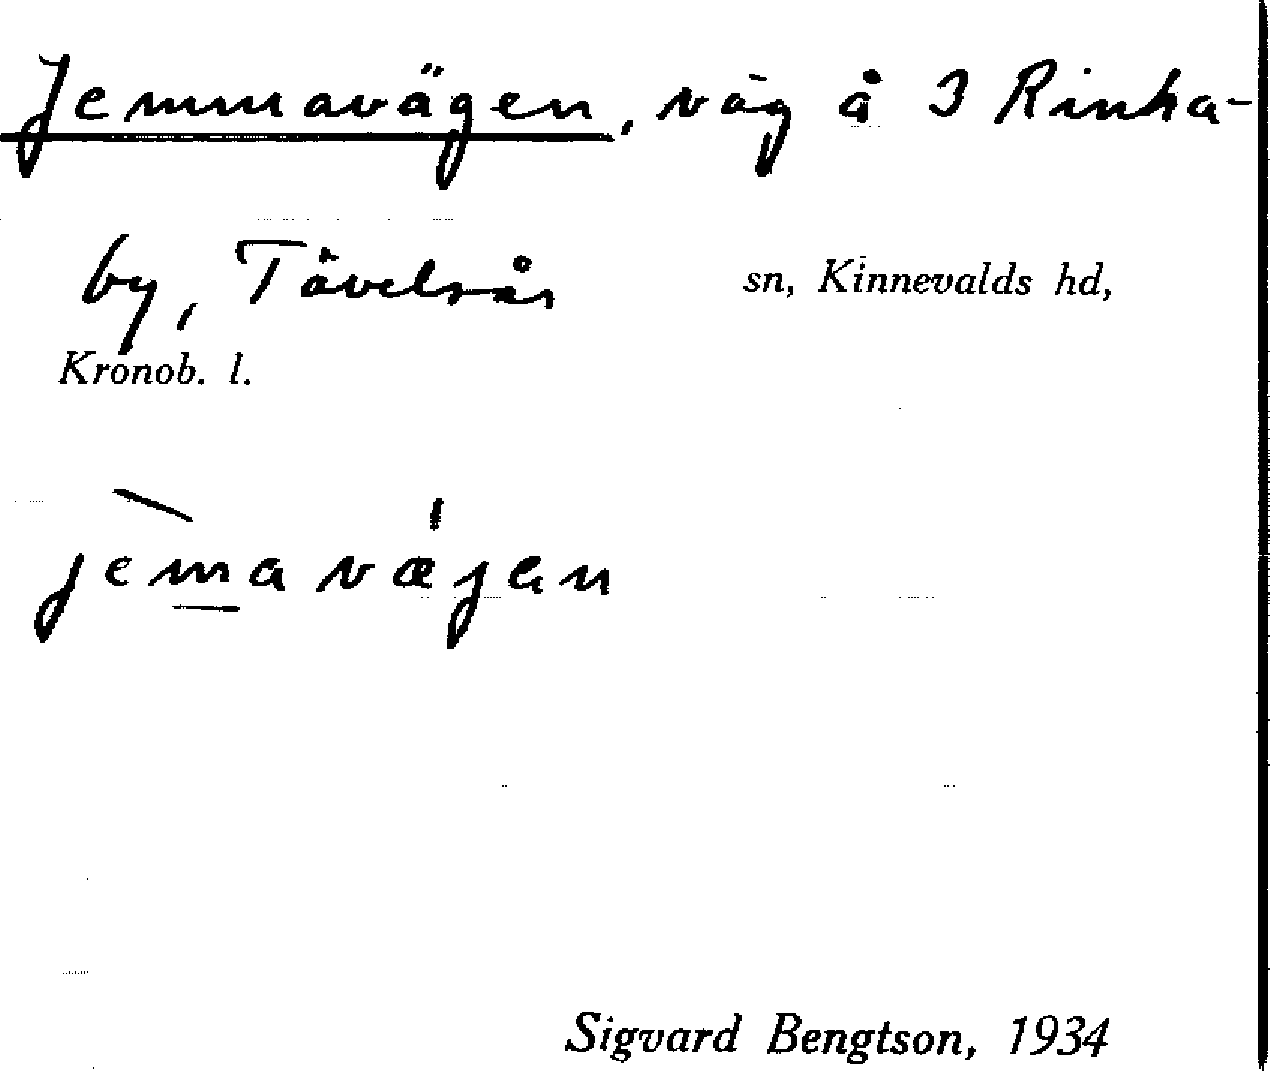 Jemmavägen, väg å 3 Rinka-
by, Tävelsås sn, Kinnevalds hd,
Kronob. l.
jèmavæ̍jen
Sigvard Bengtson, 1934